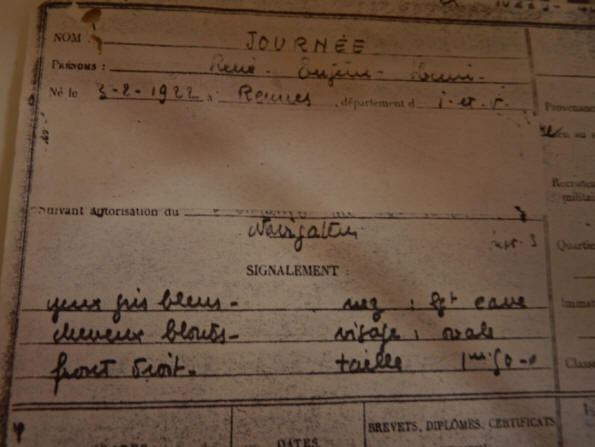 NOM : JOURNÉE
PRÉNOMS : René - Eugène - Henri -
Né le 3-2-1922 à Rennes, département d I.et.V. Provenance
Suivant autorisation du
Navigation
SIGNALEMENT : Quartier
yeux gris bleus - nez : cave
cheveux blonds - visage : ovale
front droit - taille Classe
BREVETS, DIPLÔMES, CERTIFICATS
DATES